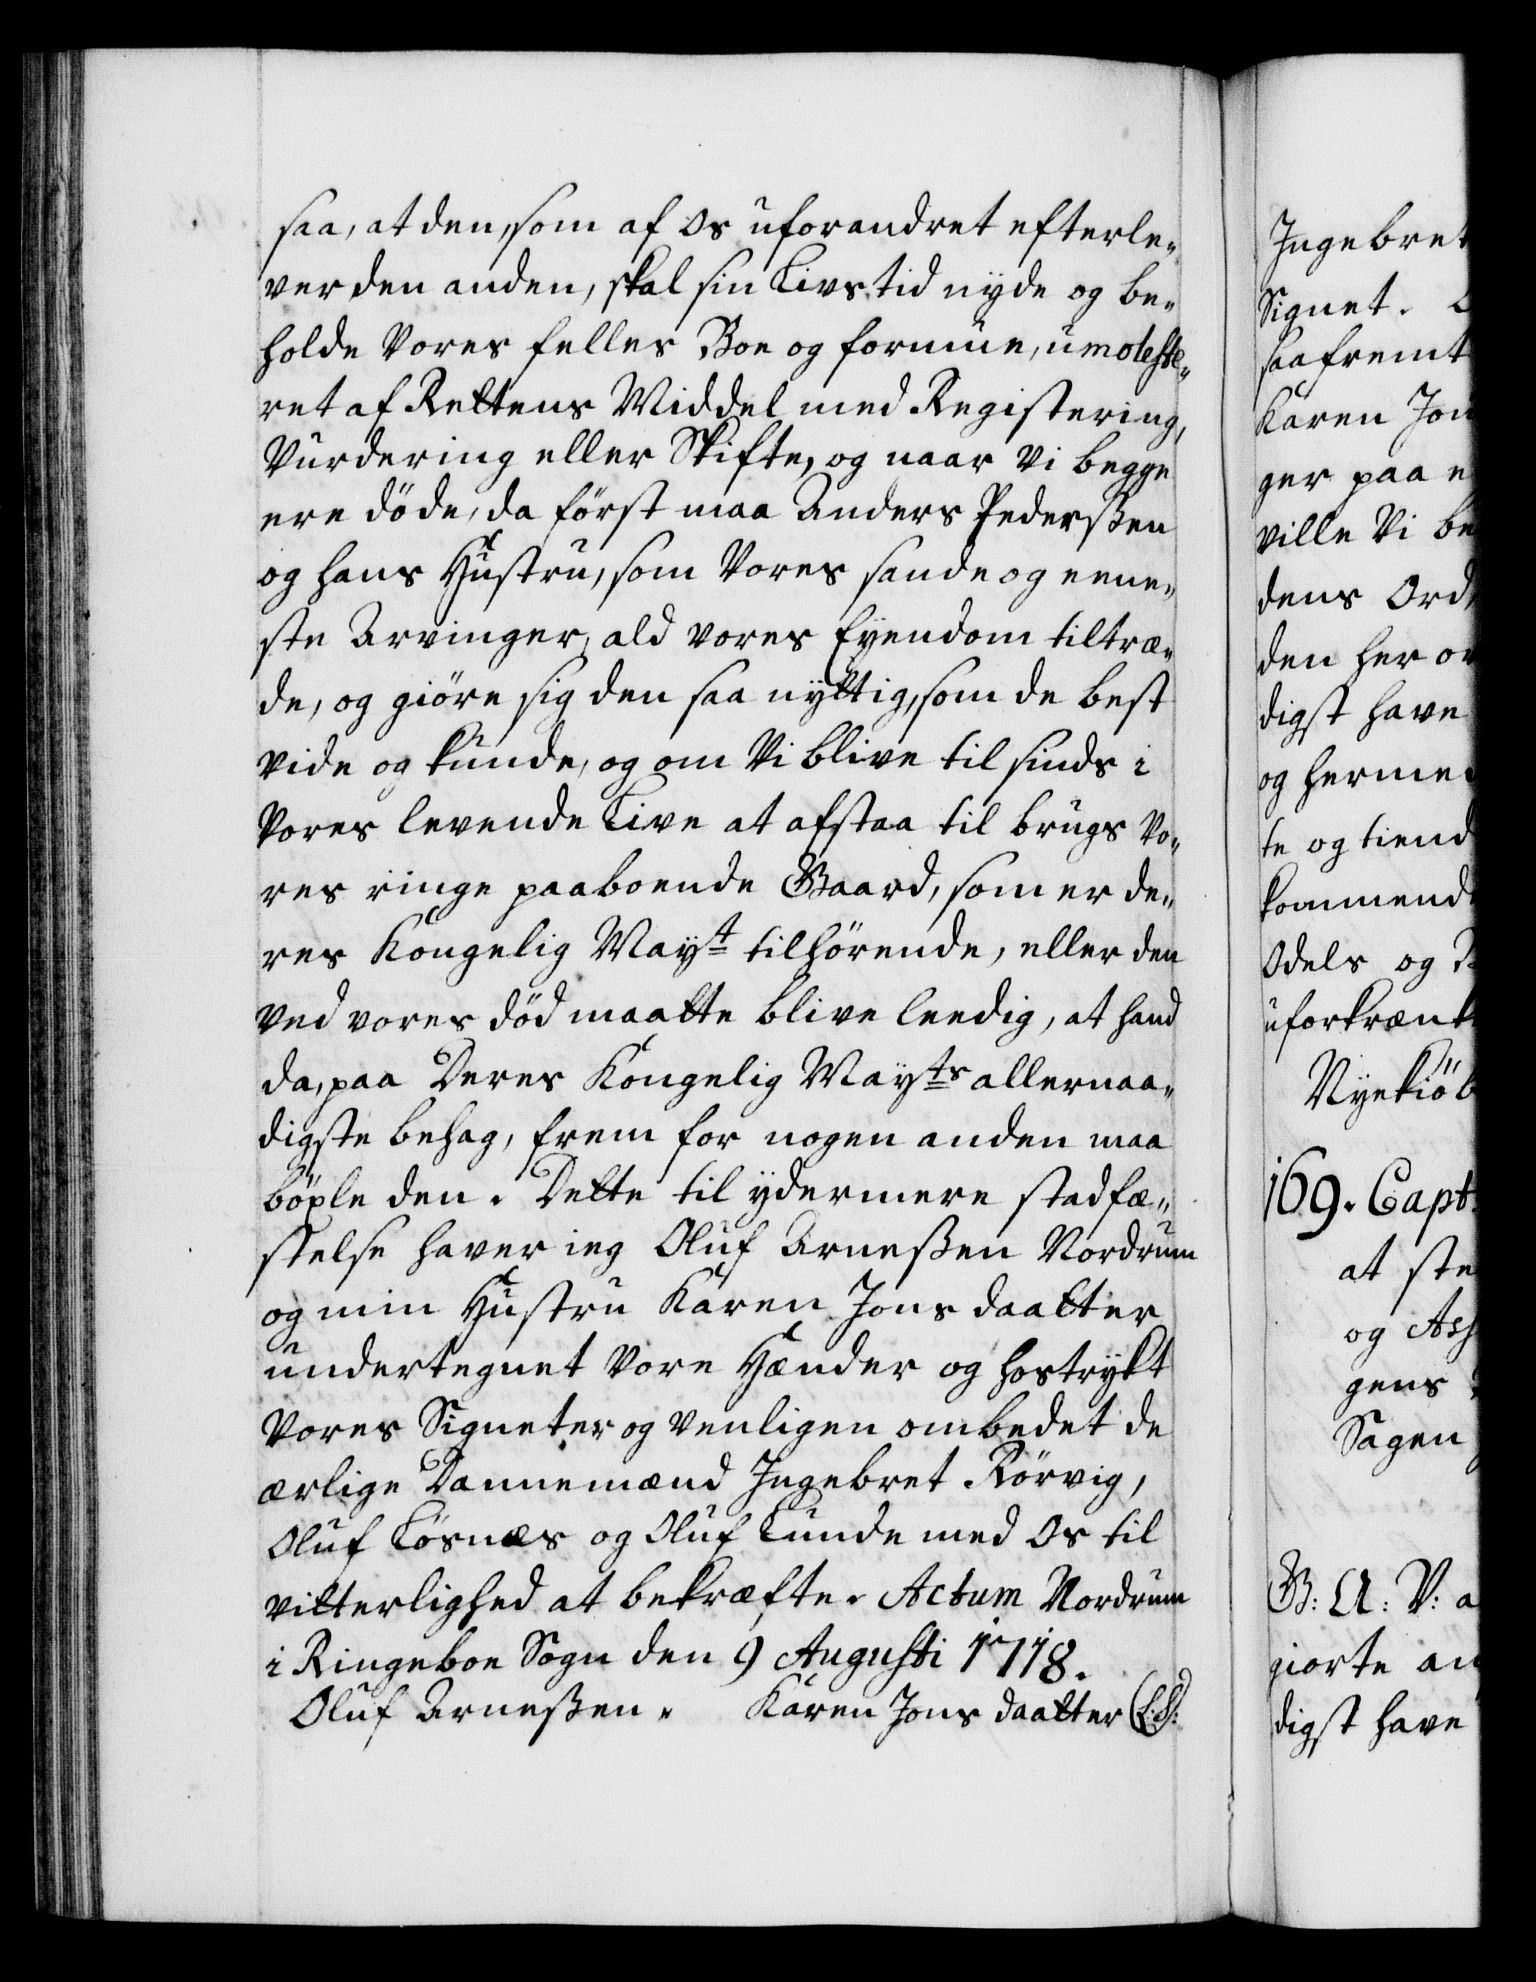 saa, at den, som af Os uforandret efterle„
ver den anden, skal sin Livs tid nyde og be„
holde Vores felles Boe og formue, umoleste„
ret af Rettens Middel med Registering,
Vurdering eller Skifte, og naar Vi begge
ere döde, da först maa Anders Pederßen
og hans Hustru, som Vores sande og eene„
ste Arvinger, ald vores Eyendom tiltræ„
de, og giöre sig den saa nyttig, som de best
vide og kunde, og om Vi blive til sinds i
Vores levende Live at afstaa til brugs Vo„
res ringe paaboende Gaard, som er de„
res Kongelig Mayt tilhörende, eller den
ved vores död maatte blive leedig, at hand
da, paa Deres Kongelig Mayts allernaa„
digste behag, frem for nogen anden maa
böxle den. Dette til ydermere stadfæ„
stelse haver ieg Oluf Arneßen Nordrum
og min Hustru Karen Jons daatter
undertegnet Vore Hænder og hostrykt
Vores Signeter og venligen ombedet de
ærlige Dannemænd Ingebret Rörvig,
Oluf Lösnæs og Oluf Lunde med Os til
vitterlighed at bekræfte. Actum Nordrum
i Ringeboe Sogn den 9 Augusti 1718.
Oluf Arneßen. Karen Jons daatter (L.S.)
Ingebret
Signet.
saafremt
Karen Jon
ger paa e
ville Vi be
dens Ord
den her o
digst have
og herme
te og tiend
kommend
Odels og
uforkrænk
Nyekiöb
169. Capt.
at ste
og Ass
gens
Sagen
G: A: V: a
giorte an
digst have